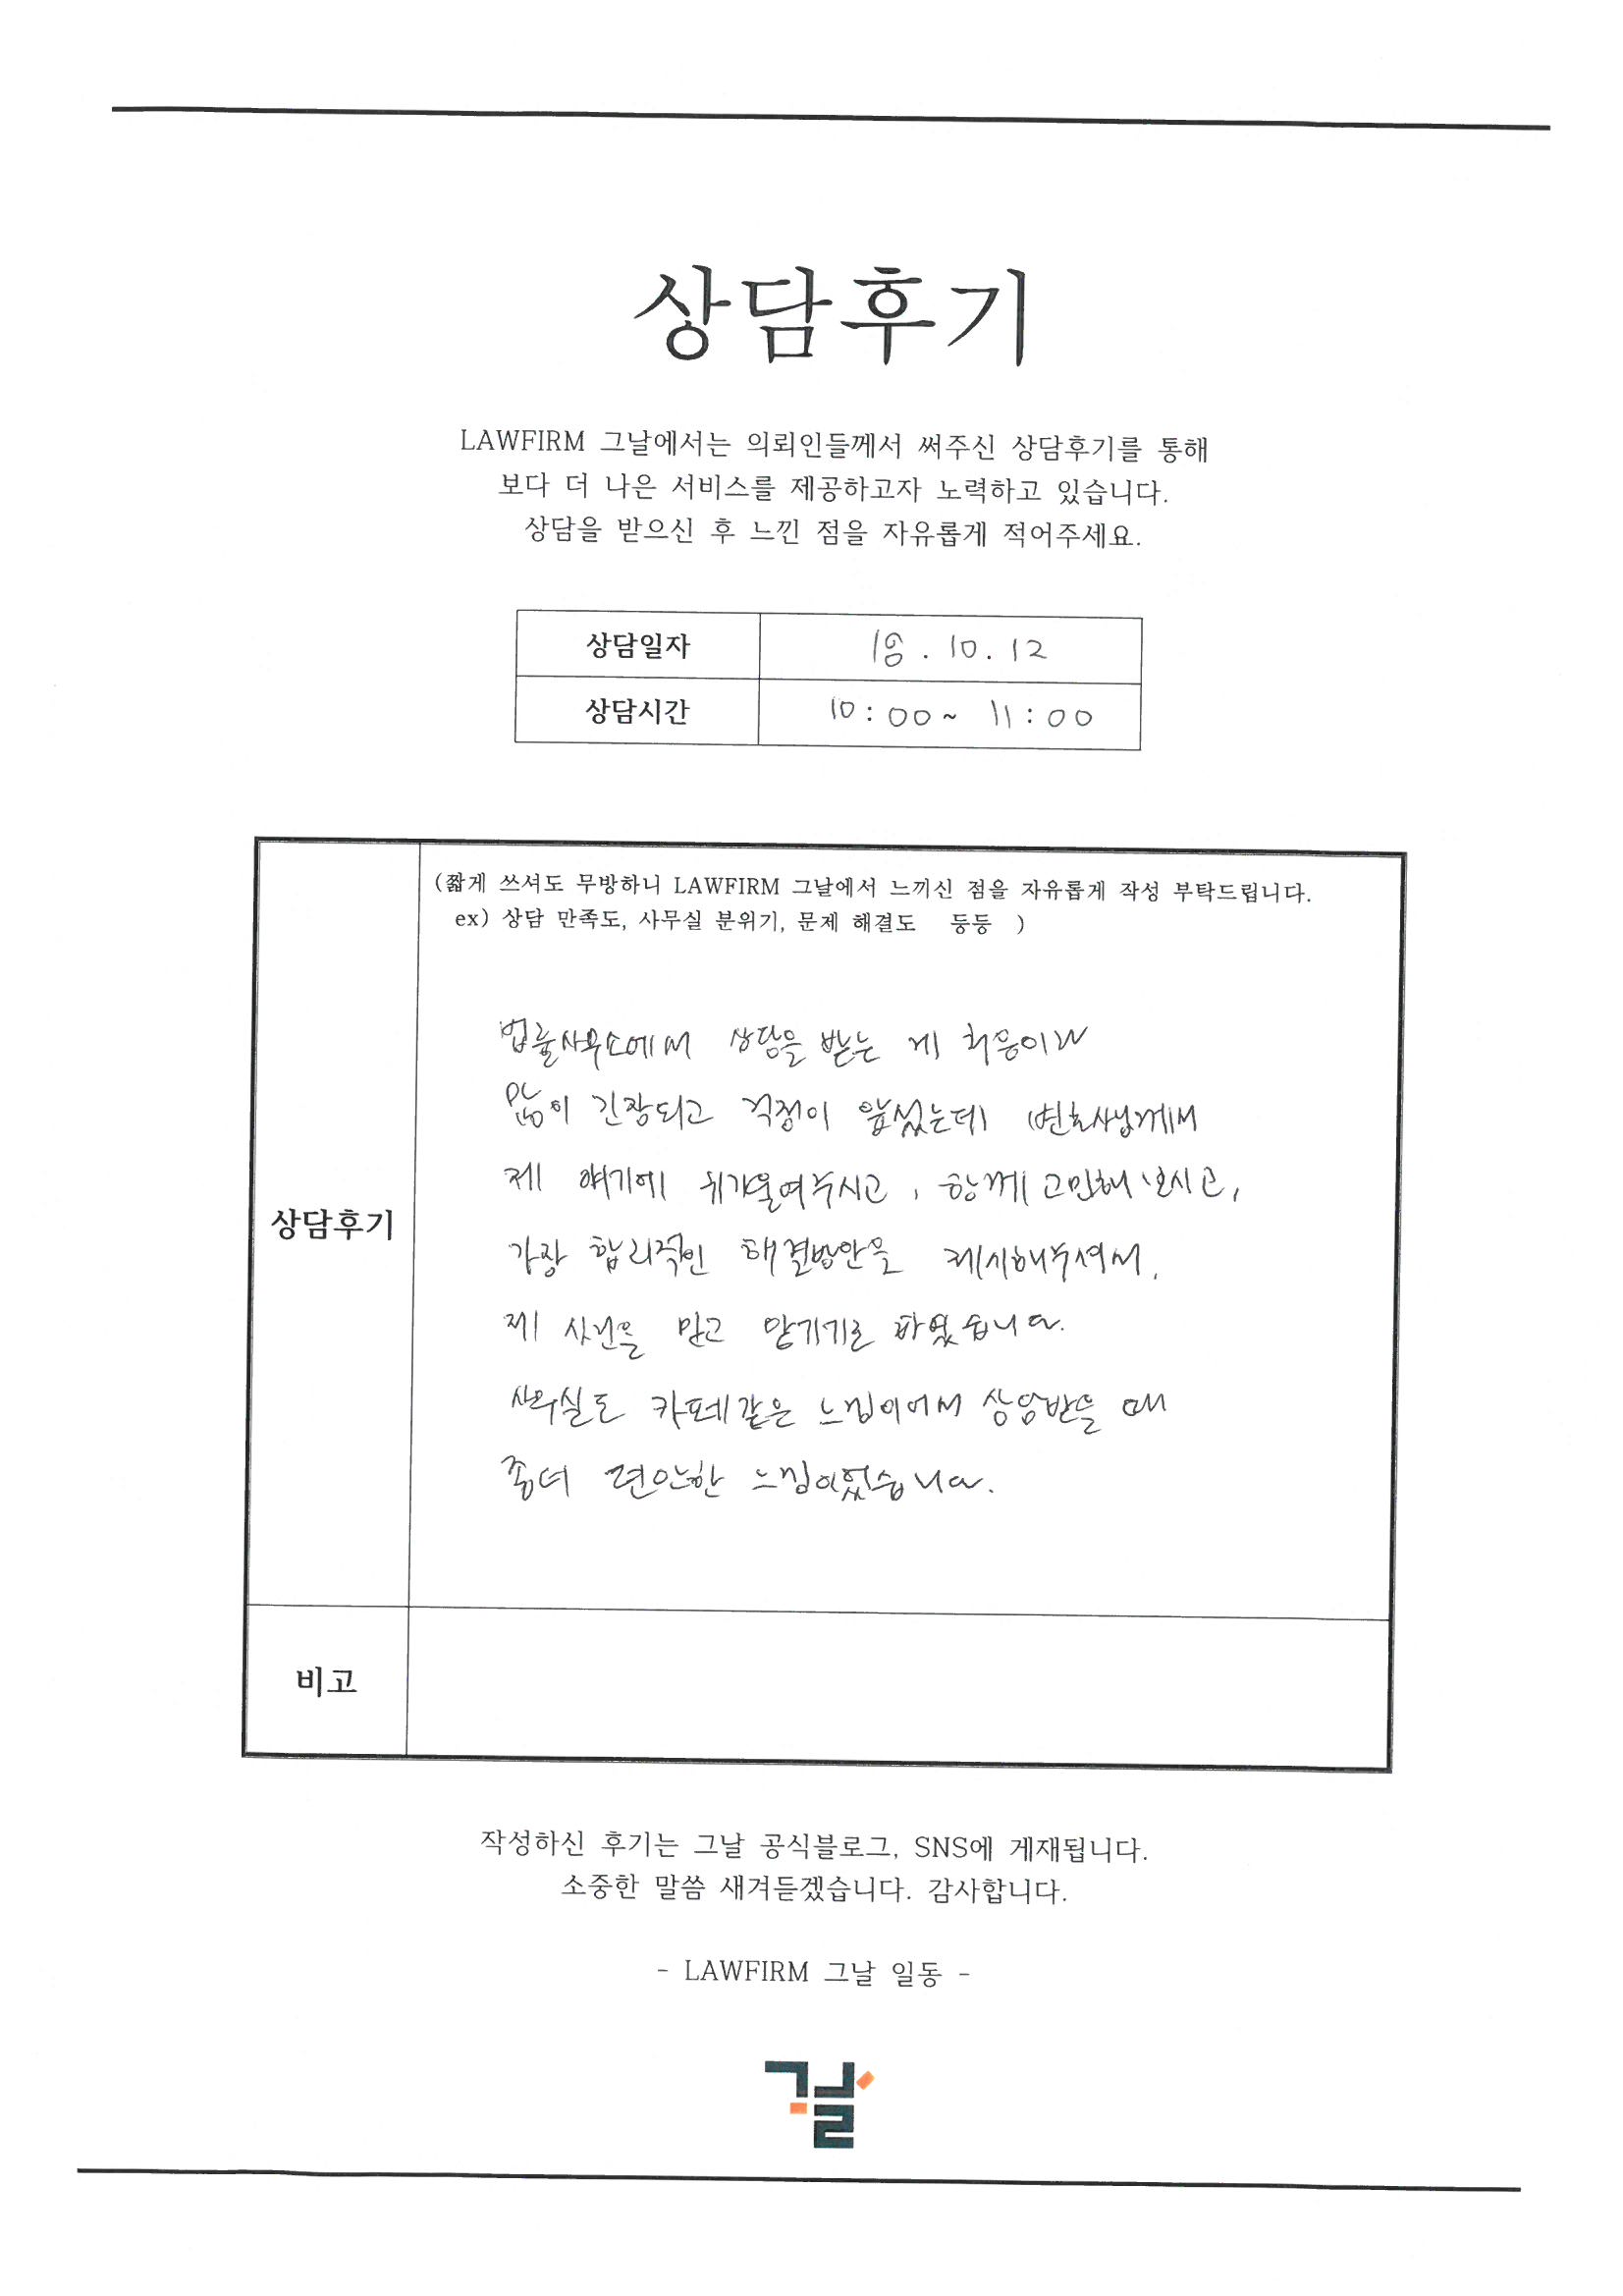 상담후기
LAWFIRM 그날에서는 의뢰인들께서 써주신 상담후기를 통해
보다 더 나은 서비스를 제공하고자 노력하고 있습니다.
상담을 받으신 후 느낀 점을 자유롭게 적어주세요.
상담일자 18. 10. 12
상담시간 10:00~ 11:00
(짧게 쓰셔도 무방하니 LAWFIRM 그날에서 느끼신 점을 자유롭게 작성 부탁드립니다.
ex) 상담 만족도, 사무실 분위기, 문제 해결도 등등 )
법률사무소에서 상담을 받는 게 처음이라
많이 긴장되고 걱정이 앞섰는데 변호사님께서
제 얘기에 귀기울여주시고, 함께 고민해 보시고,
가장 합리적인 해결방안을 제시해주셔서,
제 사건을 믿고 맡기기로 하였습니다.
사무실도 카페같은 느낌이어서 상담받을 때
좀더 편안한 느낌이었습니다.
상담후기
비고
작성하신 후기는 그날 공식블로그, SNS에 게재됩니다.
소중한 말씀 새겨듣겠습니다. 감사합니다.
- LAWFIRM 그날 일동 -
그날